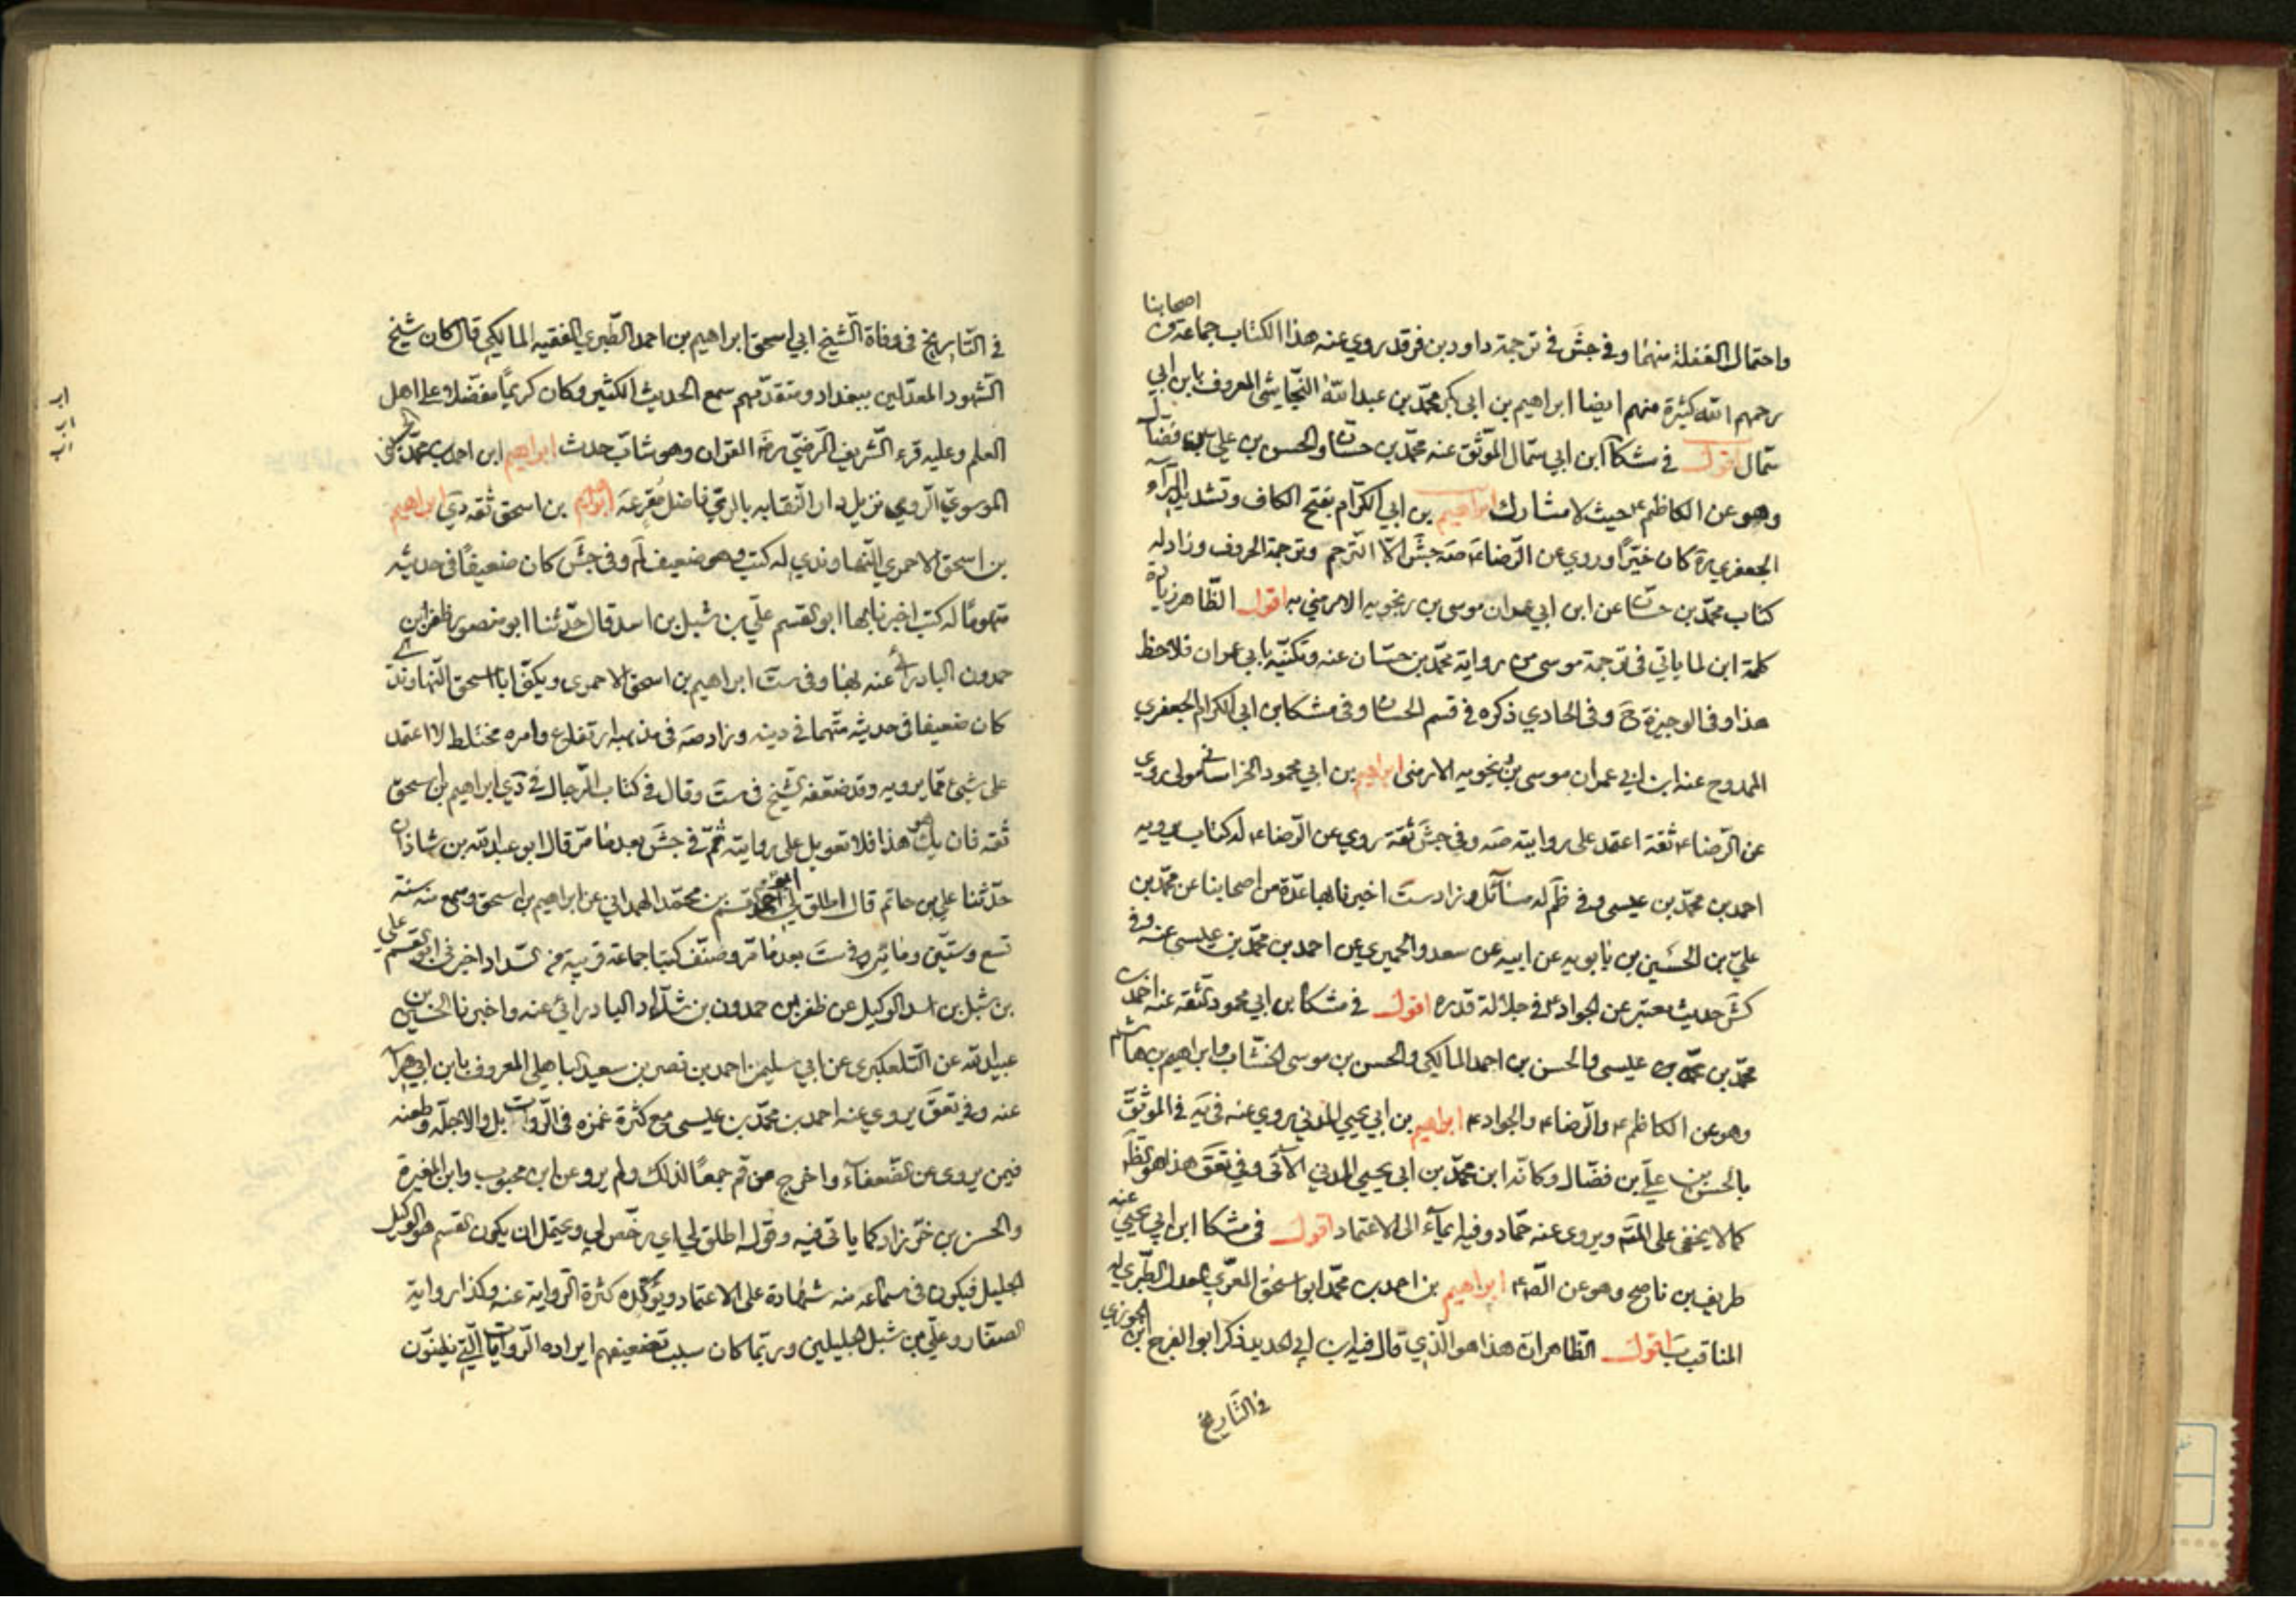 اصحابنا
واحتمال الغفلة منهما وفي جش في ترجمة داود بن فرقد روي عنه هذا الكتاب جماعة من
رحمهم الله كثيرة منهم ايضا ابراهيم بن ابي بكر محمد بن عبد الله النجاشي المعروف بابن ابي
سمال اقول في مشكا ابن ابي سمال الموثق عنه محمد بن حسان والحسن بن علي بن فضال
وهو عن الكاظم ع حيث لا مشارك ابراهيم بن ابي الكرام بفتح الكاف وتشديد الراء
الجعفري ره كان خيرا وروي عن الرضا ع صه جش الا الترجم وترجمة الحروف وزاد له
كتاب محمد بن حسان عن ابن ابي عمران موسى بن رنجويه الارمني به اقول الظاهر زيادة
كلمة ابن لما ياتي في ترجمة موسى من رواية محمد بن حسان عنه وتكنيه بابي عمران فلاحظ
هذا وفي الوجيزة ح وفي الحاوي ذكره في قسم الحسان وفي مشكا بن ابي الكرام الجعفري
الممدوح عنه ابن ابي عمران موسى بن رنجويه الارمني ابراهيم بن ابي محمود الخراساني مولى روي
عن الرضا ع ثقة اعتمد على روايته صه وفي جش ثقة روي عن الرضا ع له كتاب يرويه
احمد بن محمد بن عيسى وفي ظم له مسائل وزاد ست اخبرنا بها عدة من اصحابنا عن محمد بن
علي بن الحسين بن بابويه عن ابيه عن سعد والحميري عن احمد بن محمد بن عيسى عنه وفي
كش حديث معتبر عن الجواد ع في جلالة قدره اقول في مشكا بن ابي محمود الثقة عنه احمد بن
محمد بن عيسى والحسن بن احمد المالكي والحسن بن موسى الخشاب وابراهيم بن هاشم
وهو عن الكاظم ع والرضا ع والجواد ع ابراهيم بن ابي يحيى المدني يروي عنه في يه في الموثق
بالحسن بن علي بن فضال وكانه ابن محمد بن ابي يحيى المدني الآتي وفي تعق هذا هو الظاهر
كما لا يخفى على المتتبع ويروى عنه حماد وفيه ايماء الى الاعتماد اقول في مشكا ابن ابي يحيى عنه
طريف بن ناصح وهو عن الص ع ابراهيم بن احمد بن محمد ابو اسحق المقري العدل الطبري له
المناقب ب اقول الظاهر ان هذا هو الذي قال فيه ابن ابي الحديد ذكر ابو الفرج ابن الجوزي
في التاريخ
في التاريخ في وفاة الشيخ ابي اسحق ابراهيم بن احمد الطبري الفقيه المالكي قال كان شيخ
الشهود المعدلين ببغداد ومتقدمهم سمع الحديث الكثير وكان كريما مفضلا على اهل
العلم وعليه قرء الشريف الرضي رضه القرآن وهو شاب حدث ابراهيم ابن احمد بن محمد
الموسوي الروي نزيل دار النقابة بالري فاضل مقرء عه ابراهيم بن اسحق ثقة دي ابراهيم
بن اسحق الاحمري النهاوندي له كتب وهو ضعيف لم وفي جش كان ضعيفا في حديثه
متهوما له كتب اخبرنا بها ابو القسم علي بن شبل بن اسد قال حدثنا ابو منصور ظفر بن
حمدون البادرائي عنه بها وفي ست ابراهيم بن اسحق الاحمري ويكنى ابا اسحق النهاوندي
كان ضعيفا في حديثه متهما في دينه وزاد صه في مذهبه ارتفاع وامره مختلط لا اعتمد
على شيء مما يرويه وقد ضعفه الشيخ في ست وقال في كتاب الرجال في دي ابراهيم بن اسحق
ثقه فان يك هو هذا فلا تعويل على روايته ثم في جش بعد ما مر قال ابو عبد الله بن شاذان
حدثنا علي بن حاتم قال اطلق لي ابو احمد القسم بن محمد الهمداني عن ابراهيم بن اسحق وسمع منه سنة
تسع وستين ومائتين وفي ست بعد ما مر وصنف كتبا جماعة قريبة من السداد اخبرني ابو القسم علي
بن شبل بن اسد الوكيل عن ظفر بن حمدون بن شداد البادرائي عنه واخبرنا الحسين بن
عبيد الله عن التلعكبري عن ابي سليمن احمد بن نصر بن سعيد الباهلي المعروف بابن ابي هراسة
عنه وفي تعق يروي عنه احمد بن محمد بن عيسى مع كثرة غمزه في الروات بل والاجلة وطعنه
فيمن يروى عن الضعفاء واخرج من قم جمعا لذلك ولم يرو عن ابن محبوب وابن المغيرة
والحسن بن خرزاد كما ياتي فيه وقوله اطلق لي اي رخص لي ويحتمل ان يكون القسم هو الوكيل
الجليل فيكون في سماعه منه شهادة على الاعتماد ويؤكده كثرة الرواية عنه وكذا رواية
الصفار وعلي بن شبل الجليلين وربما كان سبب تضعيفهم ايراده الروايات التي يظنون